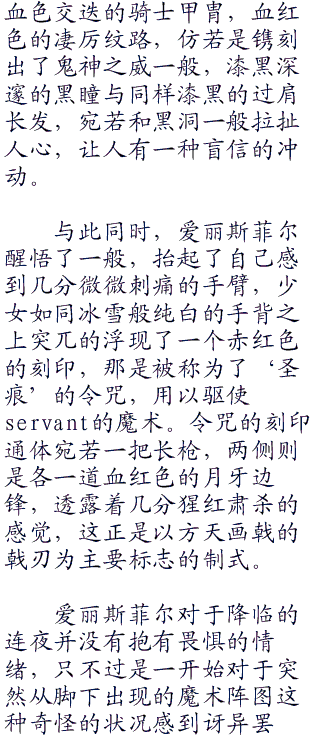 血色交迭的骑士甲胄，血红
色的凄厉纹路，仿若是镌刻
出了鬼神之威一般，漆黑深
邃的黑瞳与同样漆黑的过肩
长发，宛若和黑洞一般拉扯
人心，让人有一种盲信的冲
动。
与此同时，爱丽斯菲尔
醒悟了一般，抬起了自己感
到几分微微刺痛的手臂，少
女如同冰雪般纯白的手背之
上突兀的浮现了一个赤红色
的刻印，那是被称为了‘圣
痕’的令咒，用以驱使
servant的魔术。令咒的刻印
通体宛若一把长枪，两侧则
是各一道血红色的月牙边
锋，透露着几分猩红肃杀的
感觉，这正是以方天画戟的
戟刃为主要标志的制式。
爱丽斯菲尔对于降临的
连夜并没有抱有畏惧的情
绪，只不过是一开始对于突
然从脚下出现的魔术阵图这
种奇怪的状况感到讶异罢